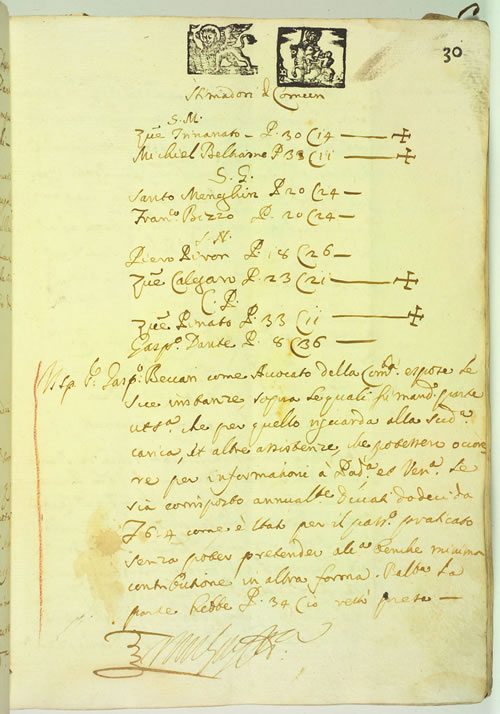 30
Stimadori d Comun
S. M.
Zuẽ Trinanato - P. 30 C 14 —
Michiel Belhame P. 33 C 11 —
S. G.
Santo Menghin P. 20 C 24 —
Franc.º Bizzo P. 20 C 24 —
S. N.
Piero Pivon P. 18 C 26 —
Zuẽ Calegaro P. 23 C 21 —
C. P.
Zuẽ Pinato P. 33 C 11 —
Gasp.º Dante P. 8 C 36 —
Gasp.º Beccari come Avocato della espose le
sue instanze, sopra le quali si mand. parte
che per quello riguarda alla sud.ª
carica, et altre assistenze, che potessero occor-
re per informationi à Pad.ª et Ven.ª le
sia corrisposto annual.te Ducati dodeci da
£6.4 come è stato per il pass.º praticato
senza poter pretender alc.ª benche minima
contributione in altra forma. Balla. La
parte hebbe P. 34 C 10 restò presa —